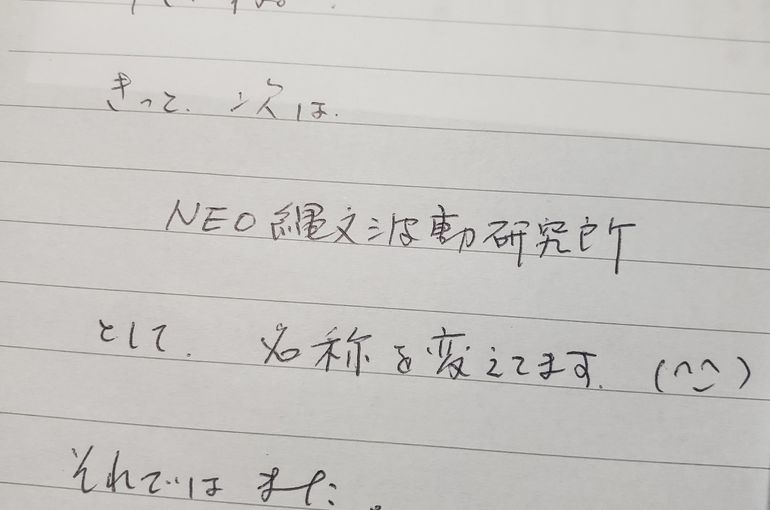 きって、次は、
NEO縄文波動研究所
として、名称を変えてます。(^^)
それではまた。